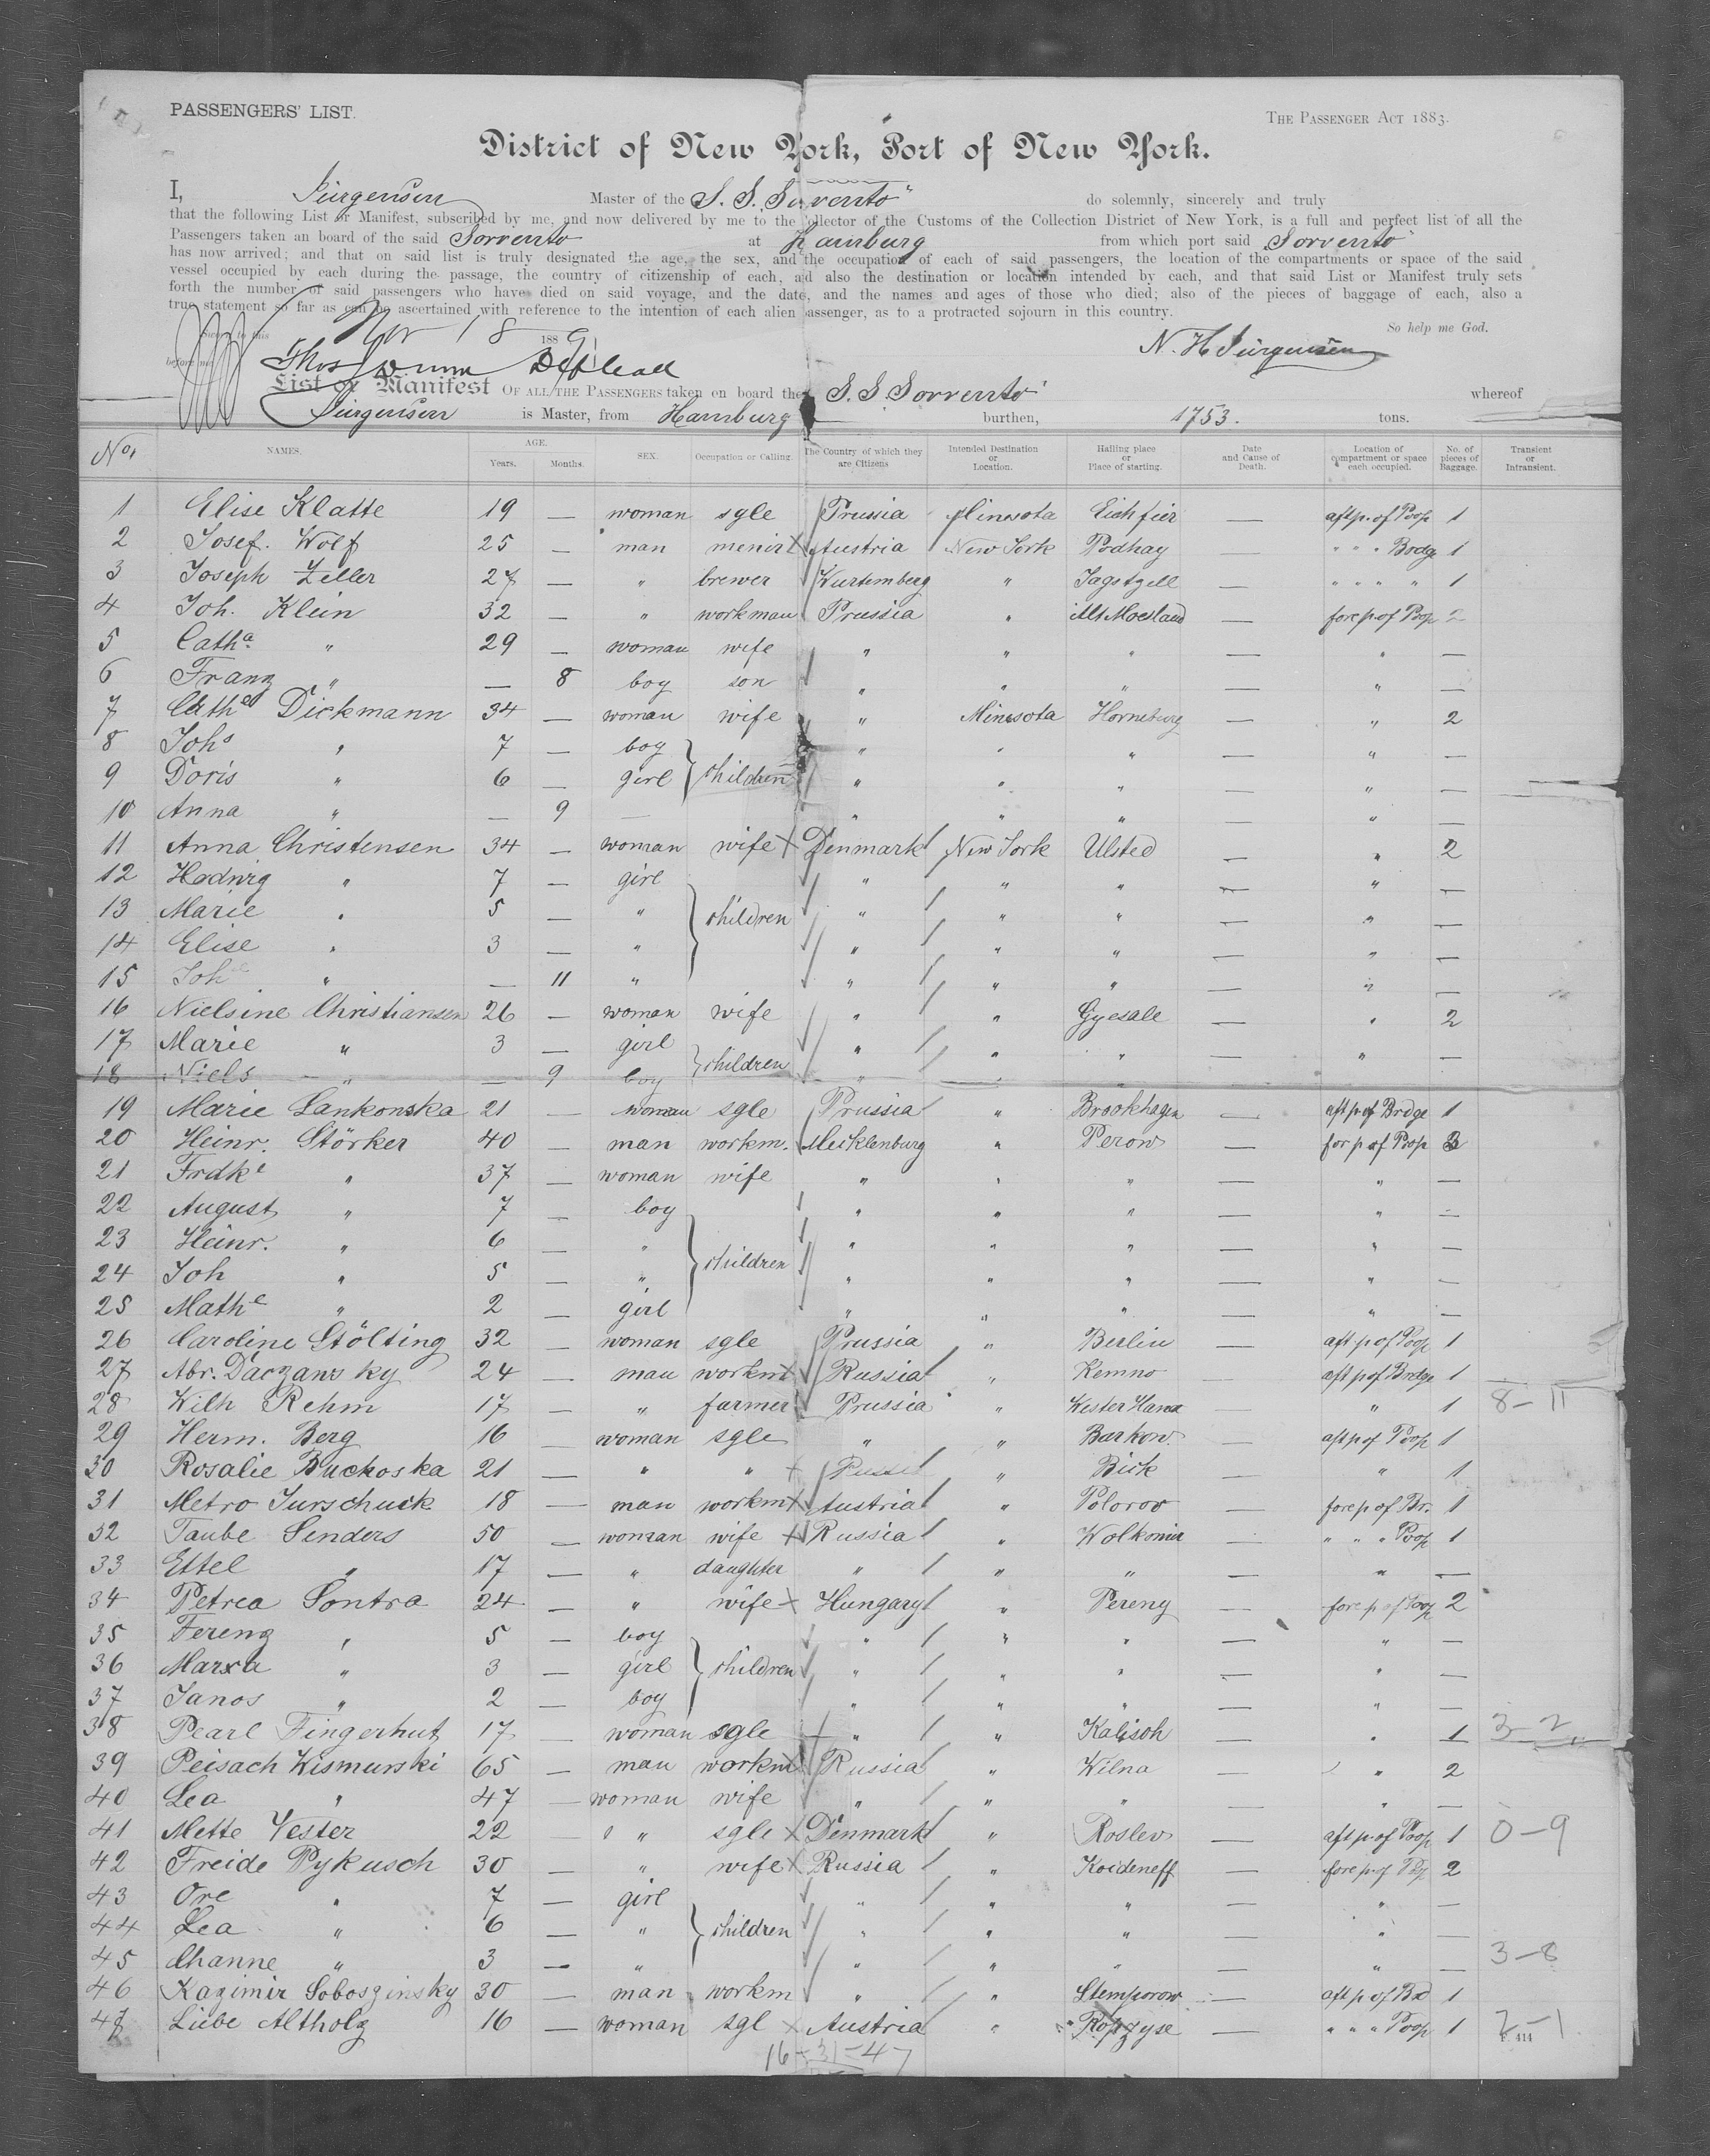 PASSENGERS' LIST.
THE PASSENGER ACT 1883.
District of New York, Port of New York.
I, Jürgensen Master of the S. S. "Sorrento" do solemnly, sincerely and truly
that the following List or Manifest, subscribed by me, and now delivered by me to the Collector of the Customs of the Collection District of New York, is a full and perfect list of all the
Passengers taken an board of the said Sorrento at Hamburg from which port said Sorrento
has now arrived; and that on said list is truly designated the age, the sex, and the occupation of each of said passengers, the location of the compartments or space of the said
vessel occupied by each during the passage, the country of citizenship of each, and also the destination or location intended by each, and that said List or Manifest truly sets
forth the number of said passengers who have died on said voyage, and the date, and the names and ages of those who died; also of the pieces of baggage of each, also a
true statement so far as can be ascertained with reference to the intention of each alien passenger, as to a protracted sojourn in this country.
So help me God.
Sworn to this Nov 18 1889
before me
N. H. Jürgensen
Thos Dunn
List or Manifest OF ALL THE PASSENGERS taken on board the S. S. Sorrento whereof
Jürgensen is Master, from Hamburg burthen, 1753. tons.
No. NAMES. AGE. Years. Months. SEX. Occupation or Calling. The Country of which they are Citizens Intended Destination or Location. Hailing place or Place of starting. Date and Cause of Death. Location of compartment or space each occupied. No. of pieces of Baggage. Transient or Intransient.
1 Elise Klatte 19 — woman sgle Prussia Minesota Eichfier — aft p. of Poop 1
2 Josef. Wolf 25 — man Austria New York Podhay — " " " Brdg 1
3 Joseph Zeller 27 — " brewer Wurtemberg " Jagstzell — " " " " 1
4 Joh. Klein 32 — " workman Prussia " Alt Moesland — fore p of Poop 2
5 Cath.a " 29 — woman wife " " " — " —
6 Franz " — 8 boy son " " " — " —
7 Cathe Dickmann 34 — woman wife " Minesota Horneburg — " 2
8 Johs " 7 — boy " " " — " —
9 Doris " 6 — girl children " " " — " —
10 Anna " — 9 — " " " — " —
11 Anna Christensen 34 — woman wife Denmark New York Ulsted — " 2
12 Hedwig " 7 — girl " " " — " —
13 Marie " 5 — " children " " " — " —
14 Elise " 3 — " " " " — " —
15 Joh " — 11 " " " " — " —
16 Nielsine Christiansen 26 — woman wife " " Gyesale — " 2
17 Marie " 3 — girl children " " " — " —
18 Niels " — 9 boy " "
19 Marie Lankonska 21 — woman sgle Prussia " Brookhagen — aft p of Brdge 1
20 Heinr. Störker 40 — man workm. Mecklenburg " Perow — for p of Poop 3
21 Frdke " 37 — woman wife " " " — " —
22 August " 7 — boy " " " — " —
23 Heinr. " 6 — " " " " — " —
24 Joh " 5 — " children " " " — " —
25 Mathe " 2 — girl " " " — " —
26 Caroline Stölting 32 — woman sgle Prussia " Berlin — aft p of Poop 1
27 Abr. Daczansky 24 — man workm Russia " Kemno — aft p of Brdge 1
28 Wilh Rehm 17 — " farmer Prussia " Wester Hana — " 1 8 – 11
29 Herm. Berg 16 — woman sgle " " Barkow. — aft p of Poop 1
30 Rosalie Buchoska 21 — " " " Bick — " 1
31 Metro Jurschuck 18 — man workm Austria " Polorov — fore p of Br. 1
32 Taube Senders 50 — woman wife Russia " Wolkomir — " " " Poop 1
33 Ettel " 17 — " daughter " " " — " —
34 Petrea Sontra 24 — " wife Hungary " Pereny — fore p of Poop 2
35 Ferenz " 5 — boy " " " — " —
36 Marxa " 3 — girl children " " " — " —
37 Janos " 2 — boy " " " — " —
38 Pearl Fingerhut 17 — woman sgle " " Kalisch — " 1 3 – 2
39 Peisach Wismurski 65 — man workm Russia " Wilna — " 2
40 Lea " 47 — woman wife " " " — " —
41 Mette Vester 22 — " sgle Denmark " Roslev — aft p of Poop 1 0 – 9
42 Freide Pykusch 30 — " wife Russia " Koideneff — fore p of Pop 2
43 Ore " 7 — girl " " " — " —
44 Lea " 6 — " children " " " — " —
45 Channe " 3 — " " " " — " — 3 – 8
46 Kazimir Soboszinsky 30 — man workm " " Stemporow — aft p of Bd 1
47 Liebe Altholz 16 — woman sgl Austria " Ropzyse — " " " Poop 1 2 – 1
F. 414
16 – 31 – 47